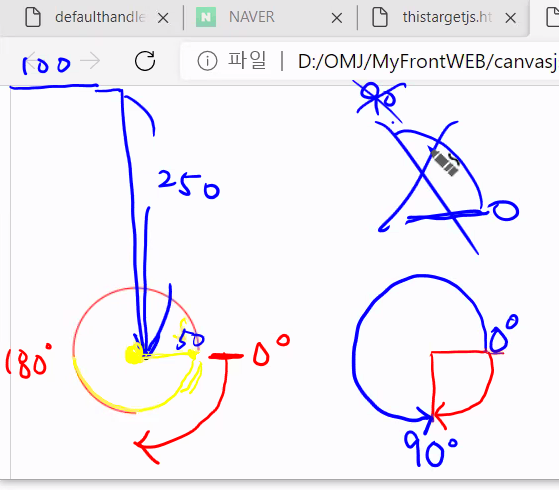 defaulthandle
NAVER
thistargetjs.ht
파일 | D:/OMJ/MyFrontWEB/canvasj
100
90
250
0
50
0°
180°
0°
90°